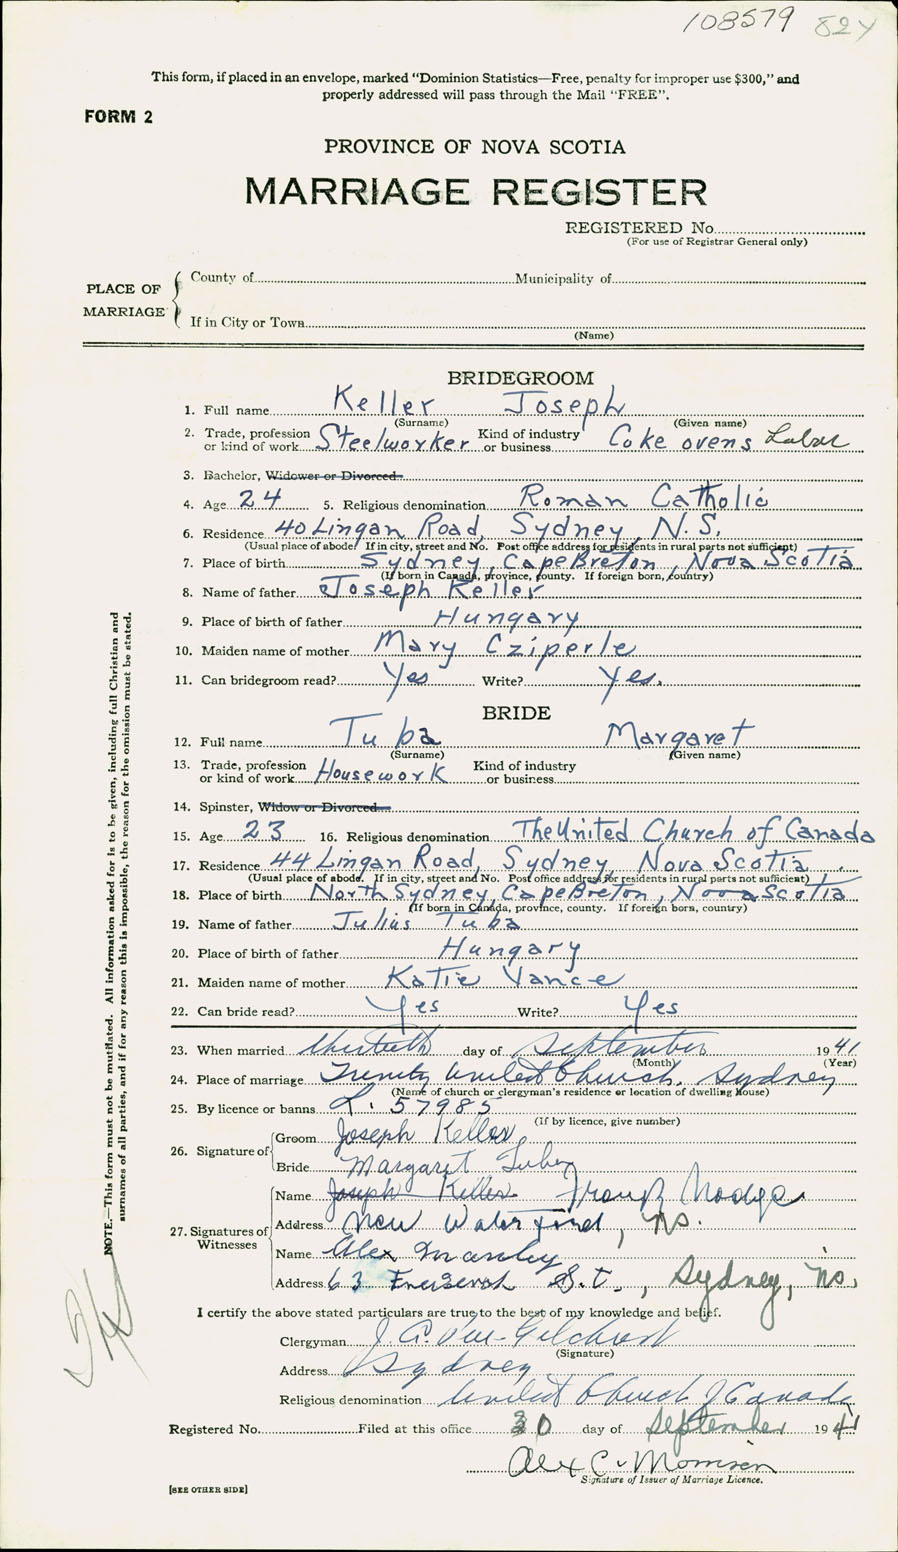 108579 824
This form, if placed in an envelope, marked "Dominion Statistics—Free, penalty for improper use $300," and
properly addressed will pass through the Mail "FREE".
FORM 2
PROVINCE OF NOVA SCOTIA
MARRIAGE REGISTER
REGISTERED No.
(For use of Registrar General only)
PLACE OF MARRIAGE
County of Municipality of
If in City or Town
(Name)
BRIDEGROOM
1. Full name Keller Joseph
(Surname) (Given name)
2. Trade, profession or kind of work Steelworker Kind of industry or business Coke ovens Labor
3. Bachelor, Widower or Divorced
4. Age 24 5. Religious denomination Roman Catholic
6. Residence 40 Lingan Road, Sydney, N.S.
(Usual place of abode. If in city, street and No. Post office address for residents in rural parts not sufficient)
7. Place of birth Sydney, Cape Breton, Nova Scotia
(If born in Canada, province, county. If foreign born, country)
8. Name of father Joseph Keller
9. Place of birth of father Hungary
10. Maiden name of mother Mary Cziperle
11. Can bridegroom read? Yes Write? Yes.
BRIDE
12. Full name Tuba Margaret
(Surname) (Given name)
13. Trade, profession or kind of work Housework Kind of industry or business
14. Spinster, Widow or Divorced
15. Age 23 16. Religious denomination The United Church of Canada
17. Residence 44 Lingan Road, Sydney, Nova Scotia
(Usual place of abode. If in city, street and No. Post office address for residents in rural parts not sufficient)
18. Place of birth North Sydney, Cape Breton, Nova Scotia
(If born in Canada, province, county. If foreign born, country)
19. Name of father Julius Tuba
20. Place of birth of father Hungary
21. Maiden name of mother Katie Vance
22. Can bride read? Yes Write? Yes
23. When married thirtieth day of September 1941
(Month) (Year)
24. Place of marriage Trinity United Church, Sydney
(Name of church or clergyman's residence or location of dwelling house)
25. By licence or banns L. 57985
(If by licence, give number)
26. Signature of
Groom Joseph Keller
Bride Margaret Tuba
27. Signatures of Witnesses
Name Joseph Keller Frank
Address New Waterford, N.S.
Name Alex
Address 63 St., Sydney, N.S.
I certify the above stated particulars are true to the best of my knowledge and belief.
Clergyman J. A. Gilchrist
(Signature)
Address Sydney
Religious denomination United Church of Canada
Registered No. Filed at this office 30 day of September 1941
Alex C. Morrison
Signature of Issuer of Marriage Licence.
[SEE OTHER SIDE]
NOTE.—This form must not be mutilated. All information asked for is to be given, including full Christian and
surnames of all parties, and if for any reason this is impossible, the reason for the omission must be stated.